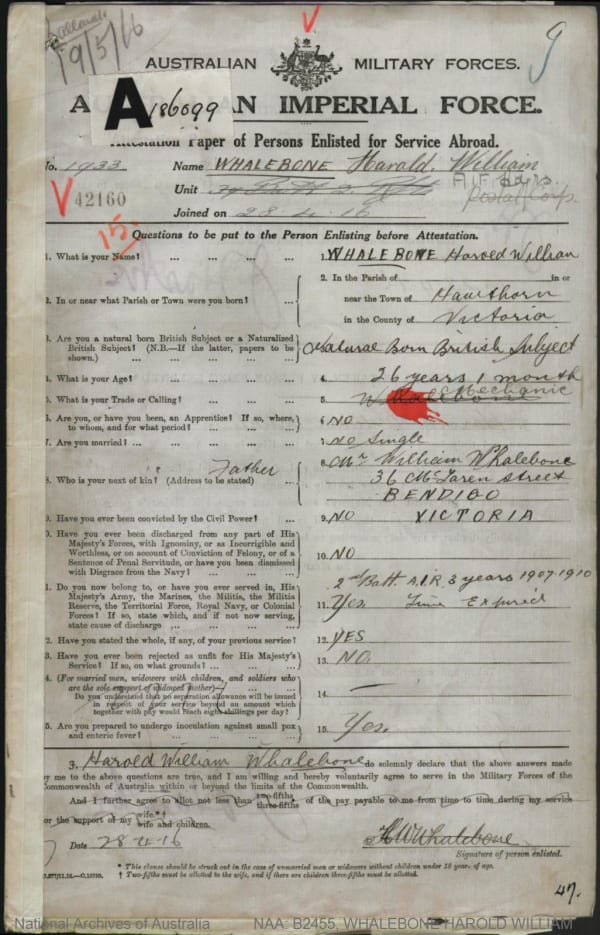 Ballarat
19/5/16
AUSTRALIAN MILITARY FORCES.
A 186099
A AN IMPERIAL FORCE.
Attestation Paper of Persons Enlisted for Service Abroad.
No. 1933 Name WHALEBONE Harold William
42160 Unit
Postal Corps.
Joined on 28 4 16
15
Questions to be put to the Person Enlisting before Attestation.
1. What is your Name? ... 1. WHALEBONE Harold William
2. In or near what Parish or Town were you born? ... 2. In the Parish of in or
near the Town of Hawthorn
in the County of Victoria
3. Are you a natural born British Subject or a Naturalized
British Subject? (N.B.—If the latter, papers to be
shown.) ... Natural Born British Subject
4. What is your Age? ... 4. 26 years 1 month
5. What is your Trade or Calling? ... 5. Mechanic
6. Are you, or have you been, an Apprentice? If so, where,
to whom, and for what period? ... 6. NO
7. Are you married? ... 7. NO Single
8. Who is your next of kin? (Address to be stated) ... Father
8. Mr William Whalebone
36 McLaren Street
BENDIGO
VICTORIA
9. Have you ever been convicted by the Civil Power? ... 9. NO
10. Have you ever been discharged from any part of His
Majesty's Forces, with Ignominy, or as Incorrigible and
Worthless, or on account of Conviction of Felony, or of a
Sentence of Penal Servitude, or have you been dismissed
with Disgrace from the Navy? ... 10. NO
11. Do you now belong to, or have you ever served in, His
Majesty's Army, the Marines, the Militia, the Militia
Reserve, the Territorial Force, Royal Navy, or Colonial
Forces? If so, state which, and if not now serving,
state cause of discharge ... 2nd Batt. A.I.R. 3 years 1907-1910
11. Yes Time Expired
12. Have you stated the whole, if any, of your previous service? 12. YES
13. Have you ever been rejected as unfit for His Majesty's
Service? If so, on what grounds? ... 13. NO.
14. (For married men, widowers with children, and soldiers who
are the sole support of widowed mother)—
Do you understand that no separation allowance will be issued
in respect of your service beyond an amount which
together with pay would reach eight shillings per day? 14. —
15. Are you prepared to undergo inoculation against small pox
and enteric fever? ... 15. Yes.
3. Harold William Whalebone do solemnly declare that the above answers made
by me to the above questions are true, and I am willing and hereby voluntarily agree to serve in the Military Forces of the
Commonwealth of Australia within or beyond the limits of the Commonwealth.
And I further agree to allot not less than two-fifths three-fifths of the pay payable to me from time to time during my service
for the support of my wife.*† wife and children.
Date 28 4 16 HWWhalebone
Signature of person enlisted.
* This clause should be struck out in the case of unmarried men or widowers without children under 18 years of age.
† Two-fifths must be allotted to the wife, and if there are children three-fifths must be allotted.
47.
National Archives of Australia NAA: B2455, WHALEBONE HAROLD WILLIAM